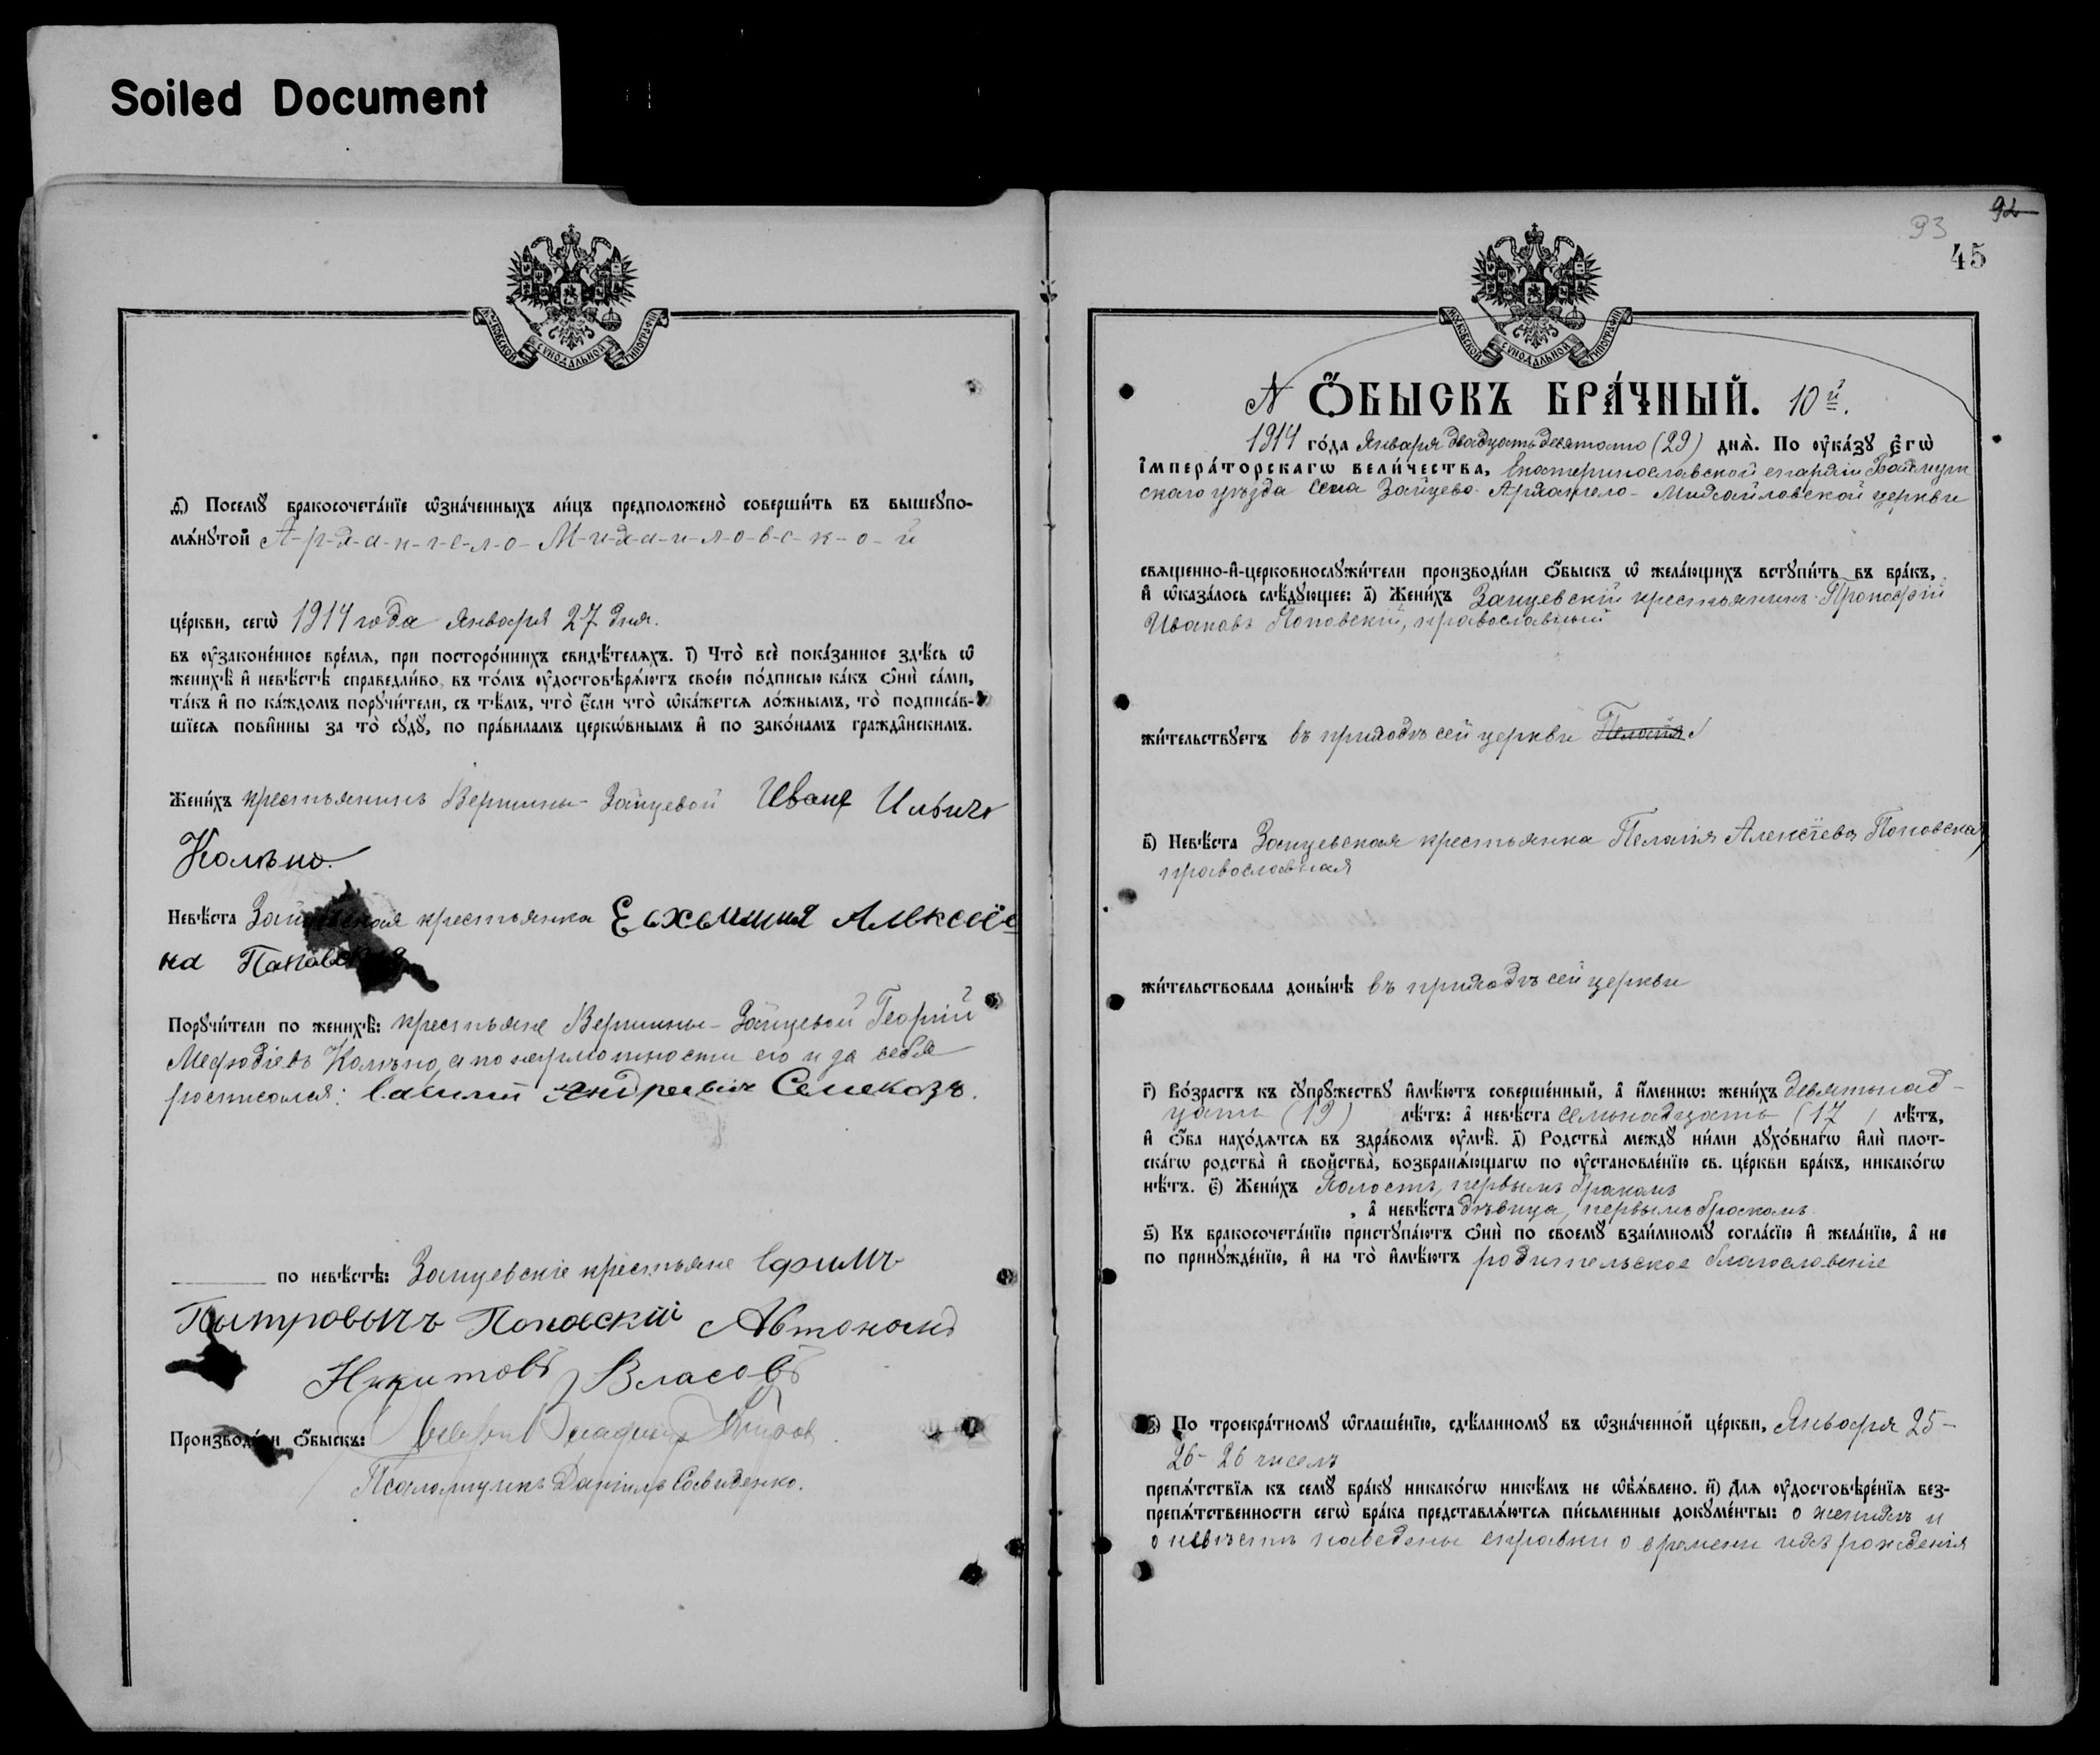 Soiled Document
МОСКОВСКОЙ СѴНОДАЛЬНОЙ ТИПОГРАФІИ
д҃) Посемꙋ бракосочета́нїе ѡ҆зна́ченныхъ ли́цъ предположено̀ соверши́ть въ вышеꙋпо-
мѧ́нꙋтой А-р-х-а-н-г-е-л-о- М-и-х-а-и-л-о-в-с-к-о-й
це́ркви, сегѡ̀ 1914 года Января 27 дня.
въ ᲂу҆законе́нное вре́мѧ, при посторо́ннихъ свидѣ́телѧхъ. і҃) Что̀ всѐ пока́занное здѣ́сь ѡ҆
женихѣ̀ и҆ невѣ́стѣ справедли́во, въ то́мъ ᲂу҆достовѣрѧ́ютъ свое́ю по́дписью ка́къ ѻ҆нѝ са́ми,
та́къ и҆ по ка́ждомъ порꙋчи́тели, съ тѣ́мъ, что̀ є҆́сли что̀ ѡ҆ка́жетсѧ ло́жнымъ, то̀ подписа́в-
шїесѧ пови́нны за то̀ сꙋдꙋ̀, по пра́виламъ церкѡ́внымъ и҆ по зако́намъ гражда́нскимъ.
Жени́хъ крестьянинъ Вершины-Зайцевой Иванъ Ильичъ
Кольно.
Невѣ́ста Зайцевская крестьянка Евхымия Алексее
на Паповская
Порꙋчи́тели по женихѣ̀: крестьяне Вершины-Зайцевой Георгій
Мефодіевъ Колѣно, а по неграмотности его и за себя
росписался: Василій Андреевич Семеказъ.
по невѣ́стѣ: Зайцевскіе крестьяне Ефимъ
Пытровычъ Поповскій Автономъ
Никитовъ Власовъ
Производи́ли ѻ҆́быскъ:
Псаломщикъ Даніилъ Савиденко.
92
93
45
МОСКОВСКОЙ СѴНОДАЛЬНОЙ ТИПОГРАФІИ
N Ѻ҆́БЫСКЪ БРА́ЧНЫЙ. 10й.
1914 го́да Января двадцать девятаго (29) днѧ̀. По ᲂу҆ка́зꙋ є҆гѡ̀
і҆мпера́торскагѡ вели́чества, Екатеринославской епархіи Бахмут
скаго уѣзда села Зайцево Архангело-Михайловской церкви
свѧще́нно-и҆-церковнослꙋжи́тели производи́ли ѻ҆́быскъ ѡ҆ жела́ющихъ встꙋпи́ть въ бра́къ,
и҆ ѡ҆каза́лось слѣ́дꙋющее: а҃) Жени́хъ Зайцевскій крестьянинъ Прокофій
Ивановъ Поповскій, православный
жи́тельствꙋетъ въ приходѣ сей церкви Пелагія
в҃) Невѣ́ста Зайцевская крестьянка Пелагія Алексіева Поповская,
православная
жи́тельствовала доны́нѣ въ приходѣ сей церкви
г҃) Во́зрастъ къ сꙋпрꙋ́жествꙋ и҆мѣ́ютъ соверше́нный, а҆ и҆́меннѡ: жени́хъ девятнад-
цать (19) лѣ́тъ: а҆ невѣ́ста семьнадцать (17) лѣ́тъ,
и҆ ѻ҆́ба нахо́дѧтсѧ въ здра́вомъ ᲂу҆мѣ̀. д҃) Родства̀ междꙋ̀ ни́ми дꙋхо́внагѡ и҆лѝ плот-
ска́гѡ родства̀ и҆ свойства̀, возбранѧ́ющагѡ по ᲂу҆становле́нїю св. це́ркви бра́къ, никако́гѡ
нѣ́тъ. є҃) Жени́хъ Холостъ, первымъ бракомъ
, а҆ невѣ́ста дѣвица, первымъ бракомъ.
ѕ҃) Къ бракосочета́нїю пристꙋпа́ютъ ѻ҆нѝ по своемꙋ̀ взаи́мномꙋ согла́сїю и҆ жела́нїю, а҆ не
по принꙋжде́нїю, и҆ на то̀ и҆мѣ́ютъ родительское благословеніе
з҃) По троекра́тномꙋ ѡ҆глаше́нїю, сдѣ́ланномꙋ въ ѡ҆зна́ченной це́ркви, Января 25-
26- 26 чиселъ
препѧ́тствїѧ къ семꙋ̀ бра́кꙋ никако́гѡ никѣ́мъ не ѡ҆бъѧ́влено. и҃) Длѧ ᲂу҆достовѣре́нїѧ без-
препѧ́тственности сегѡ̀ бра́ка представлѧ́ютсѧ пи́сьменные докꙋме́нты: о женихѣ и
о невѣстѣ наведены справки о времени ихъ рожденія